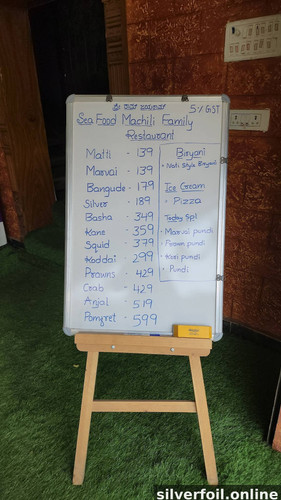 ಶ್ರೀ ರಾಮ್ ಜಯರಾಮ್
5% GST
Sea Food Machili Family
Restaurant
Matti - 139
Marvai - 139
Bangude - 179
Silver - 189
Basha - 349
Kane - 359
Squid - 379
Koddai - 299
Prawns - 429
Crab - 429
Anjal - 519
Pomfret - 599
Biryani
• Nati Style Biryani
Ice Cream
• Pizza
Today Spl
• Marvai pundi
• Prawn pundi
• Kori pundi
• Pundi
silverfoil.online